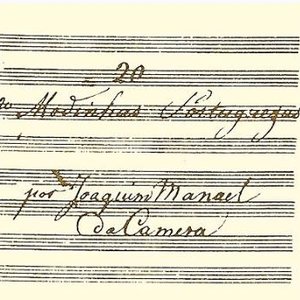 20
Modinhas Portuguezas
por Joaquim Manoel
da Camera